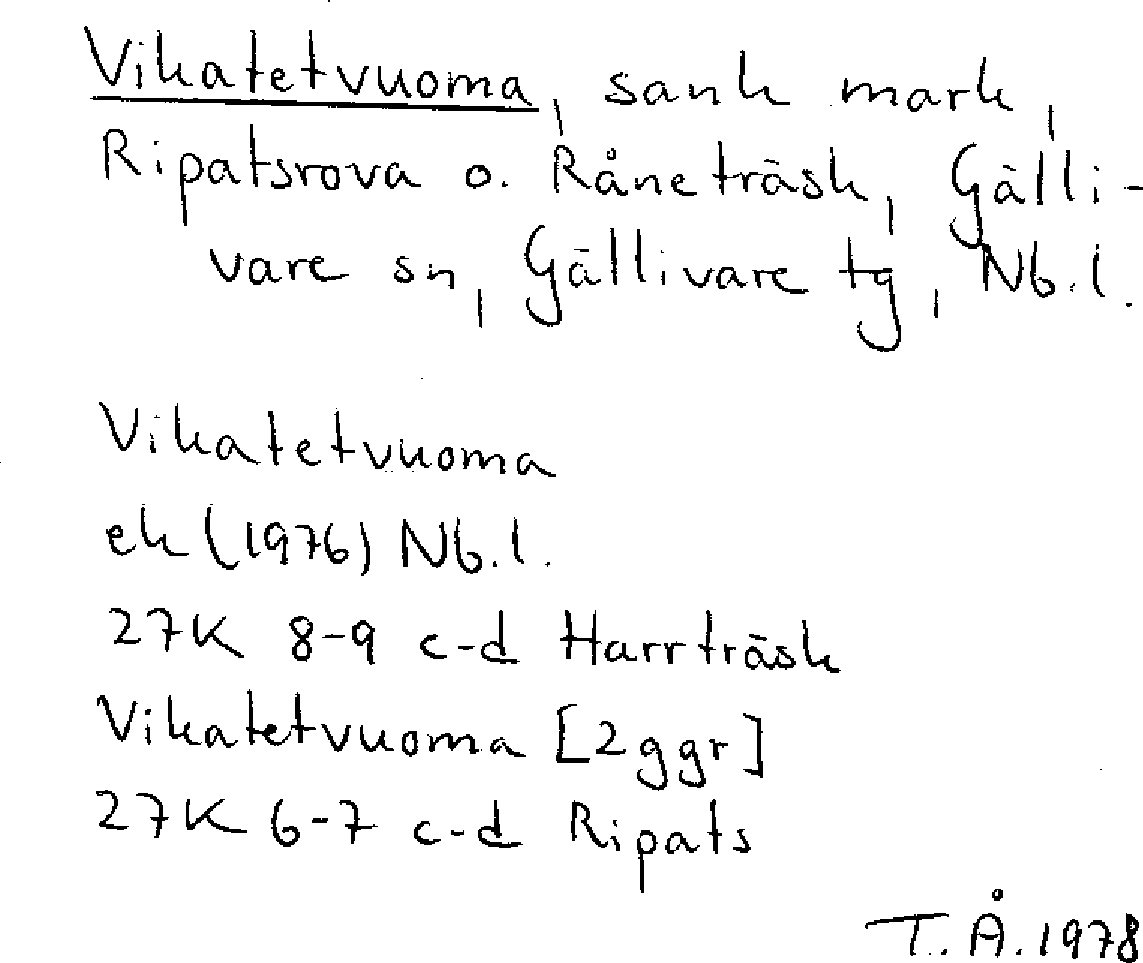 Vikatetvuoma, sank mark,
Ripatsrova o. Råneträsk, Gälli-
vare sn, Gällivare tg, Nb.l.
Vikatetvuoma
ek (1976) Nb.l.
27K 8-9 c-d Harrträsk
Vikatetvuoma [2 ggr]
27K 6-7 c-d Ripats
T.Å. 1978